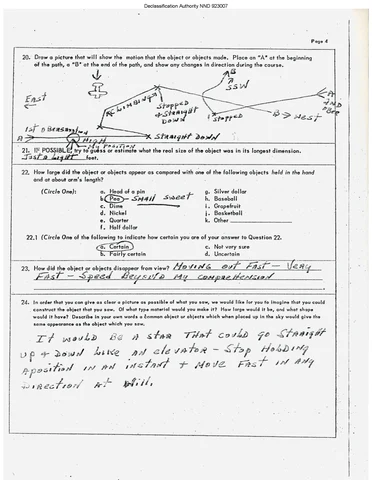 Declassification Authority NND 923007
Page 4
20. Draw a picture that will show the motion that the object or objects made. Place an "A" at the beginning
of the path, a "B" at the end of the path, and show any changes in direction during the course.
B
SSW
EAST
CLIMBING
STOPPED
+ STRAIGHT
DOWN
A
AND
WEST
STRAIGHT DOWN
A
HIGH
MY POSITION
21. IF POSSIBLE, try to guess or estimate what the real size of the object was in its longest dimension.
JUST A LIGHT feet.
22. How large did the object or objects appear as compared with one of the following objects held in the hand
and at about arm's length?
(Circle One): a. Head of a pin g. Silver dollar
b. Pea - SMALL SWEET h. Baseball
c. Dime i. Grapefruit
d. Nickel j. Basketball
e. Quarter k. Other
f. Half dollar
22.1 (Circle One of the following to indicate how certain you are of your answer to Question 22.
a. Certain c. Not very sure
b. Fairly certain d. Uncertain
23. How did the object or objects disappear from view? MOVING OUT FAST - VERY
FAST - SPEED BEYOUND MY COMPREHENSION
24. In order that you can give as clear a picture as possible of what you saw, we would like for you to imagine that you could
construct the object that you saw. Of what type material would you make it? How large would it be, and what shape
would it have? Describe in your own words a common object or objects which when placed up in the sky would give the
same appearance as the object which you saw.
IT WOULD BE A STAR THAT COULD GO STRAIGHT
UP + DOWN LIKE AN ELEVATOR - STOP HOLDING
A POSITION IN AN INSTANT + MOVE FAST IN ANY
DIRECTION AT WILL.